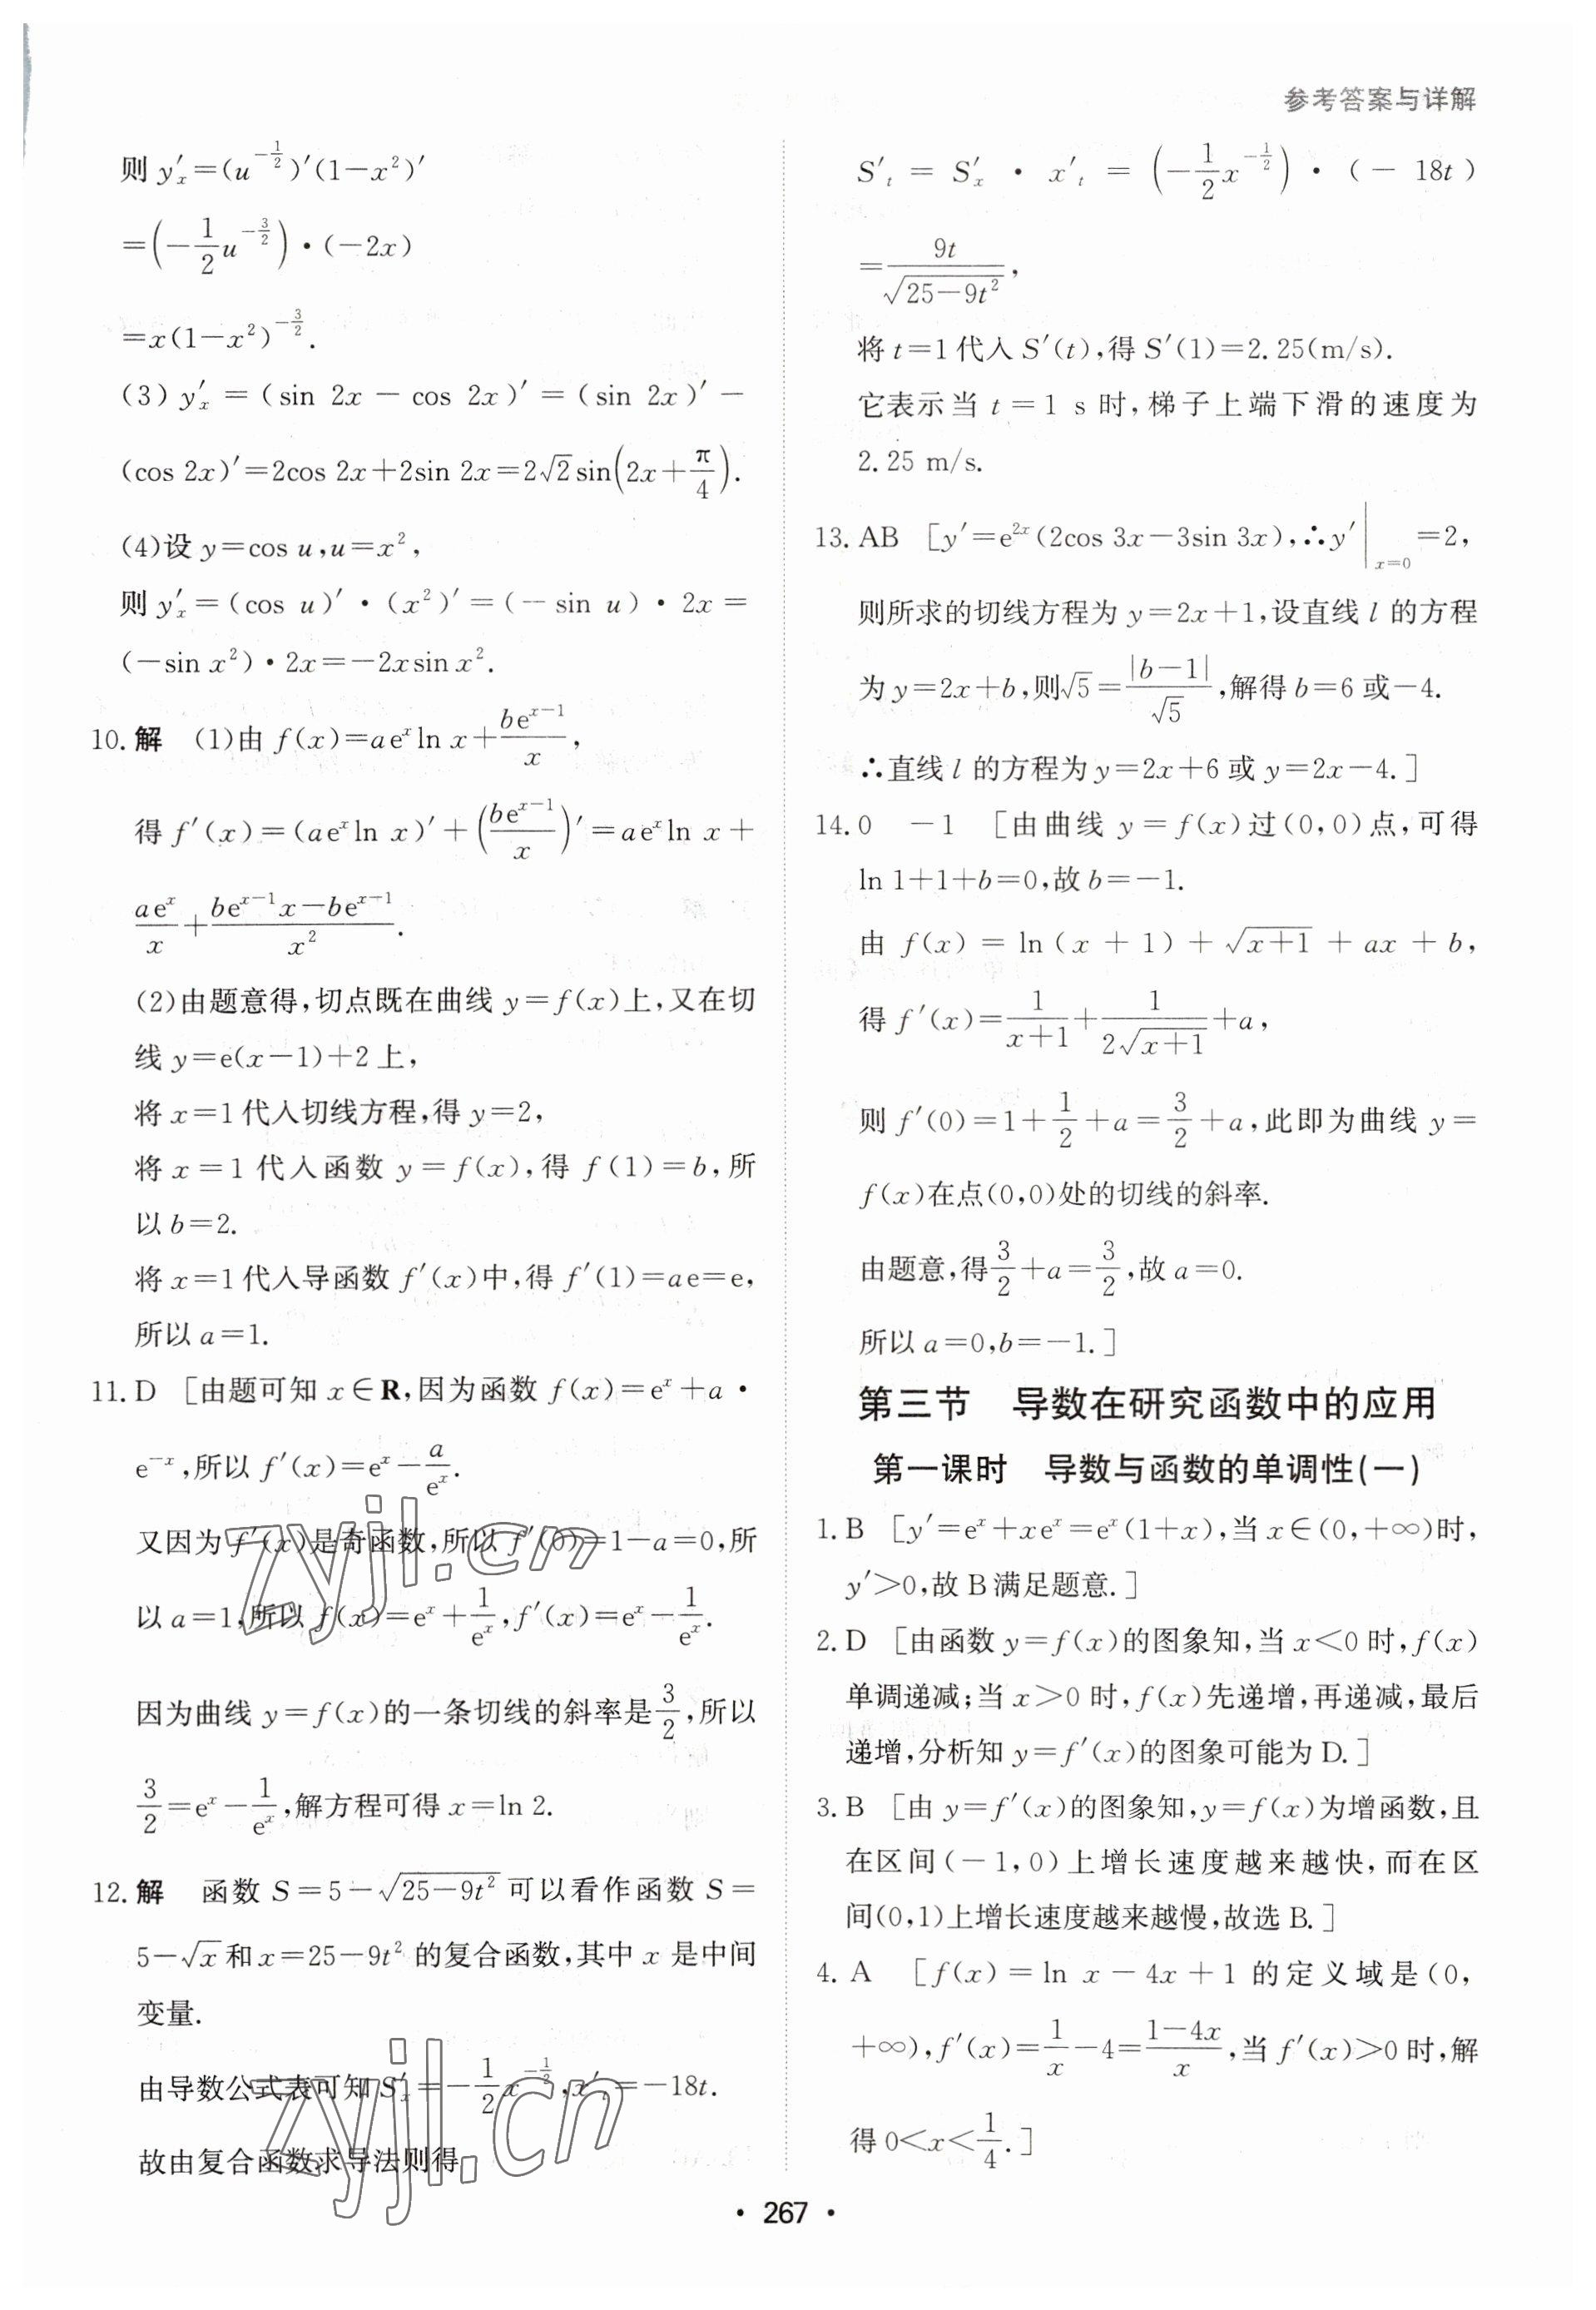 参考答案与详解
则 y′ₓ=(u^{-1/2})′(1-x²)′
=(-1/2 u^{-3/2})·(-2x)
=x(1-x²)^{-3/2}.
(3) y′ₓ=(sin 2x-cos 2x)′=(sin 2x)′-
(cos 2x)′=2cos 2x+2sin 2x=2√2sin(2x+π/4).
(4)设 y=cos u,u=x²,
则 y′ₓ=(cos u)′·(x²)′=(-sin u)·2x=
(-sin x²)·2x=-2xsin x².
10. 解 (1)由 f(x)=aeˣln x+be^{x-1}/x,
得 f′(x)=(aeˣln x)′+(be^{x-1}/x)′=aeˣln x+
aeˣ/x+(be^{x-1}x-be^{x-1})/x².
(2)由题意得,切点既在曲线 y=f(x)上,又在切
线 y=e(x-1)+2 上,
将 x=1 代入切线方程,得 y=2,
将 x=1 代入函数 y=f(x),得 f(1)=b,所
以 b=2.
将 x=1 代入导函数 f′(x)中,得 f′(1)=ae=e,
所以 a=1.
11. D [由题可知 x∈R,因为函数 f(x)=eˣ+a·
e⁻ˣ,所以 f′(x)=eˣ-a/eˣ.
又因为 f′(x)是奇函数,所以 f′(0)=1-a=0,所
以 a=1,所以 f(x)=eˣ+1/eˣ,f′(x)=eˣ-1/eˣ.
因为曲线 y=f(x)的一条切线的斜率是3/2,所以
3/2=eˣ-1/eˣ,解方程可得 x=ln 2.
12. 解 函数 S=5-√(25-9t²)可以看作函数 S=
5-√x和 x=25-9t² 的复合函数,其中 x 是中间
变量.
由导数公式表可知 S′ₓ=-1/2 x^{-1/2},x′ₜ=-18t.
故由复合函数求导法则得
S′ₜ=S′ₓ·x′ₜ=(-1/2 x^{-1/2})·(-18t)
=9t/√(25-9t²),
将 t=1 代入 S′(t),得 S′(1)=2.25(m/s).
它表示当 t=1 s 时,梯子上端下滑的速度为
2.25 m/s.
13. AB [y′=e²ˣ(2cos 3x-3sin 3x),∴y′|ₓ₌₀=2,
则所求的切线方程为 y=2x+1,设直线 l 的方程
为 y=2x+b,则√5=|b-1|/√5,解得 b=6 或-4.
∴直线 l 的方程为 y=2x+6 或 y=2x-4.]
14. 0 -1 [由曲线 y=f(x)过(0,0)点,可得
ln 1+1+b=0,故 b=-1.
由 f(x)=ln(x+1)+√(x+1)+ax+b,
得 f′(x)=1/(x+1)+1/(2√(x+1))+a,
则 f′(0)=1+1/2+a=3/2+a,此即为曲线 y=
f(x)在点(0,0)处的切线的斜率.
由题意,得3/2+a=3/2,故 a=0.
所以 a=0,b=-1.]
第三节 导数在研究函数中的应用
第一课时 导数与函数的单调性(一)
1. B [y′=eˣ+xeˣ=eˣ(1+x),当 x∈(0,+∞)时,
y′>0,故 B 满足题意.]
2. D [由函数 y=f(x)的图象知,当 x<0 时,f(x)
单调递减;当 x>0 时,f(x)先递增,再递减,最后
递增,分析知 y=f′(x)的图象可能为 D.]
3. B [由 y=f′(x)的图象知,y=f(x)为增函数,且
在区间(-1,0)上增长速度越来越快,而在区
间(0,1)上增长速度越来越慢,故选 B.]
4. A [f(x)=ln x-4x+1 的定义域是(0,
+∞),f′(x)=1/x-4=(1-4x)/x,当 f′(x)>0 时,解
得 0<x<1/4.]
zyjl.cn
zyjl.cn
· 267 ·